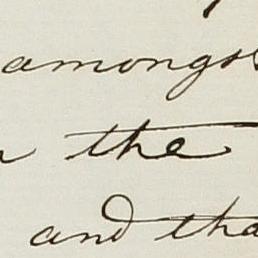 amongst
the
and tha